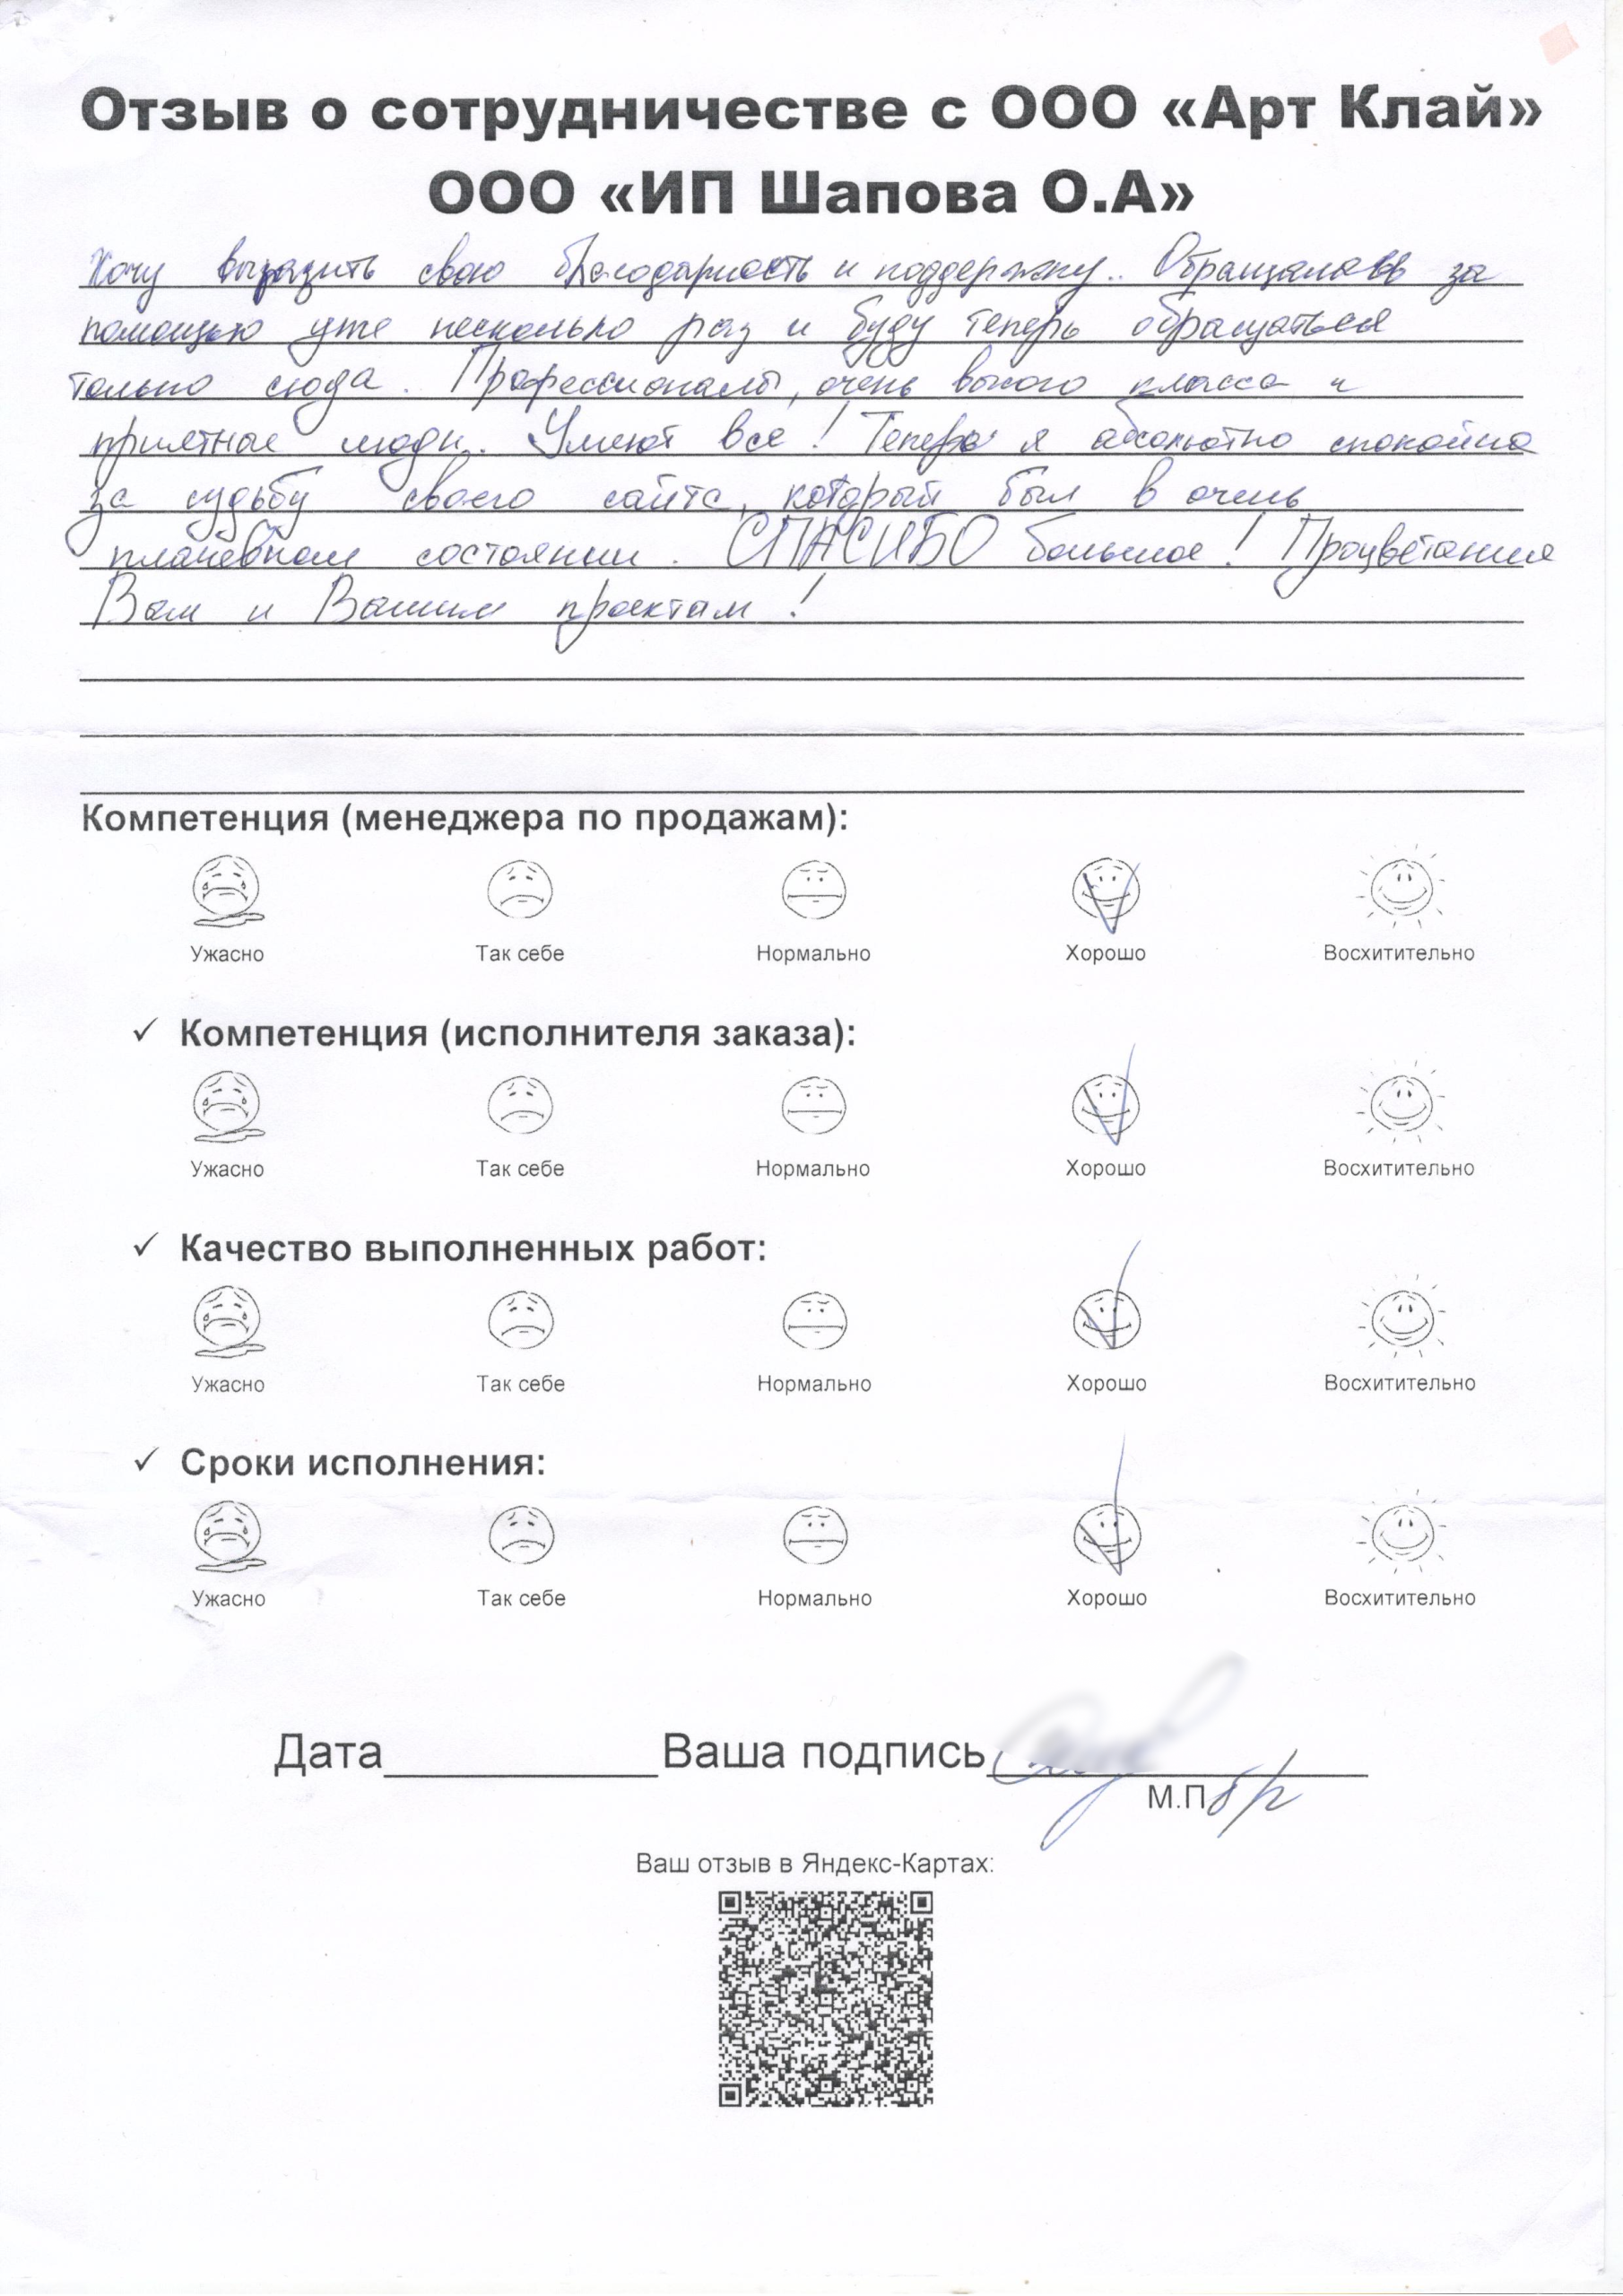 Отзыв о сотрудничестве с ООО «Арт Клай»
ООО «ИП Шапова О.А»
Хочу выразить свою благодарность и поддержку.. Обращалась за
помощью уже несколько раз и буду теперь обращаться
только сюда. Професcионалы, очень высого класса и
приятные люди. Умеют все! Теперь я абсолютно спокойна
за судьбу своего сайта, который был в очень
плачевном состоянии. СПАСИБО большое! Процветания
Вам и Вашим проектам!
Компетенция (менеджера по продажам):
Ужасно Так себе Нормально Хорошо Восхитительно
✓ Компетенция (исполнителя заказа):
Ужасно Так себе Нормально Хорошо Восхитительно
✓ Качество выполненных работ:
Ужасно Так себе Нормально Хорошо Восхитительно
✓ Сроки исполнения:
Ужасно Так себе Нормально Хорошо Восхитительно
Дата Ваша подпись
М.П б/р
Ваш отзыв в Яндекс-Картах: